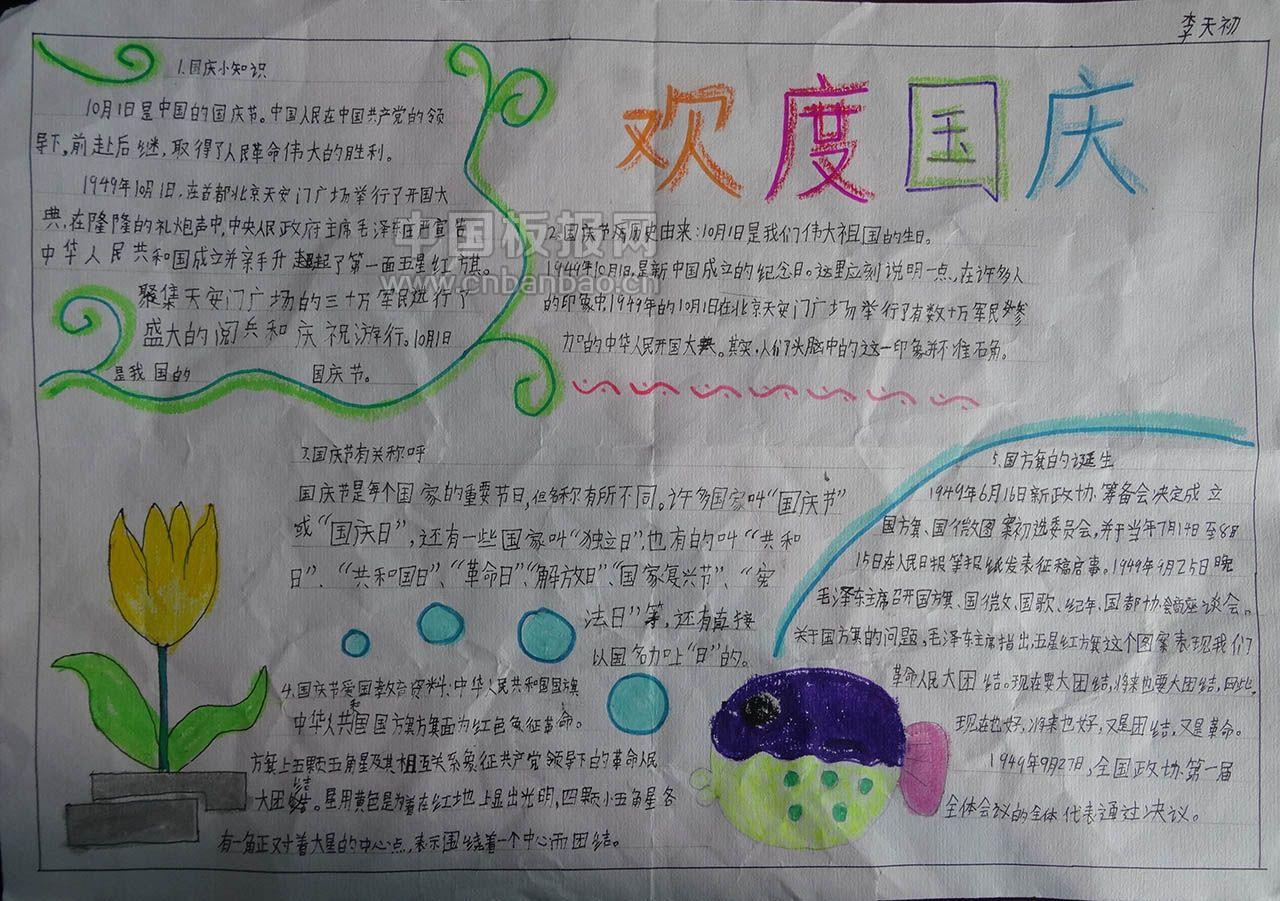 李天初
欢度国庆
1.国庆小知识
10月1日是中国的国庆节。中国人民在中国共产党的领
导下,前赴后继,取得了人民革命伟大的胜利。
1949年10月1日,在首都北京天安门广场举行了开国大
典,在隆隆的礼炮声中,中央人民政府主席毛泽东庄严宣告
中华人民共和国成立并亲手升起了第一面五星红旗。
聚集天安门广场的三十万军民进行了
盛大的阅兵和庆祝游行。10月1日
是我国的 国庆节。
2.国庆节历史由来:10月1日是我们伟大祖国的生日。
1949年10月1日,是新中国成立的纪念日。这里应刻说明一点,在许多人
的印象中,1949年的10月1日在北京天安门广场举行了有数十万军民参
加的中华人民开国大典。其实,人们头脑中的这一印象并不准确。
中国板报网
www.cnbanbao.cn
3.国庆节有关称呼
国庆节是每个国家的重要节日,但名称有所不同。许多国家叫“国庆节”
或“国庆日”,还有一些国家叫“独立日”,也有的叫“共和
日”、“共和国日”、“革命日”、“解放日”、“国家复兴节”、“宪
法日”等,还有直接
以国名加上“日”的。
4.国庆节爱国教育资料:中华人民共和国国旗
中华人共和国国旗旗面为红色象征革命。
旗上五颗五角星及其相互关系象征共产党领导下的革命人民
大团结。星用黄色是为着在红地上显出光明,四颗小五角星各
有一角正对着大星的中心点,表示围绕着一个中心而团结。
5.国旗的诞生
1949年6月16日新政协筹备会决定成立
国旗、国徽图案初选委员会,并于当年7月14日至8月
15日在人民日报等报纸发表征稿启事。1949年9月25日晚
毛泽东主席召开国旗、国徽、国歌、纪年、国都协商座谈会。
关于国旗的问题,毛泽东主席指出,五星红旗这个图案表现我们
革命人民大团结。现在要大团结,将来也要大团结,因此,
现在也好,将来也好,又是团结,又是革命。
1949年9月27日,全国政协第一届
全体会议的全体代表通过决议。